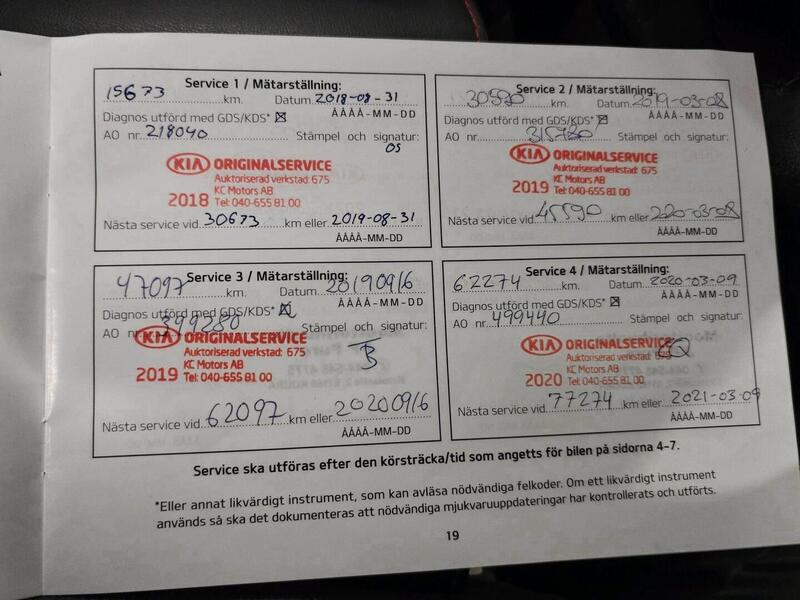 Service 1 / Mätarställning:
15673 km. Datum 2018-08-31
Diagnos utförd med GDS/KDS* ☒ ÅÅÅÅ-MM-DD
AO nr. 218040 Stämpel och signatur:
OS
KIA ORIGINALSERVICE
Auktoriserad verkstad: 675
KC Motors AB
2018 Tel: 040-655 81 00
Nästa service vid 30673 km eller 2019-08-31
ÅÅÅÅ-MM-DD
Service 2 / Mätarställning:
30590 km. Datum 2019-03-08
Diagnos utförd med GDS/KDS* ☒ ÅÅÅÅ-MM-DD
AO nr. 315780 Stämpel och signatur:
KIA ORIGINALSERVICE
Auktoriserad verkstad: 675
KC Motors AB
2019 Tel: 040-655 81 00
Nästa service vid 45590 km eller 220-03-08
ÅÅÅÅ-MM-DD
Service 3 / Mätarställning:
47097 km. Datum 20190916
Diagnos utförd med GDS/KDS* ☒ ÅÅÅÅ-MM-DD
AO nr. 399280 Stämpel och signatur:
KIA ORIGINALSERVICE
Auktoriserad verkstad: 675
KC Motors AB
2019 Tel: 040-655 81 00
Nästa service vid 62097 km eller 20200916
ÅÅÅÅ-MM-DD
Service 4 / Mätarställning:
62274 km. Datum 2020-03-09
Diagnos utförd med GDS/KDS* ☒ ÅÅÅÅ-MM-DD
AO nr. 499440 Stämpel och signatur:
KIA ORIGINALSERVICE
Auktoriserad verkstad: 675
KC Motors AB
2020 Tel: 040-655 81 00
Nästa service vid 77274 km eller 2021-03-09
ÅÅÅÅ-MM-DD
Service ska utföras efter den körsträcka/tid som angetts för bilen på sidorna 4-7.
*Eller annat likvärdigt instrument, som kan avläsa nödvändiga felkoder. Om ett likvärdigt instrument
används så ska det dokumenteras att nödvändiga mjukvaruuppdateringar har kontrollerats och utförts.
19